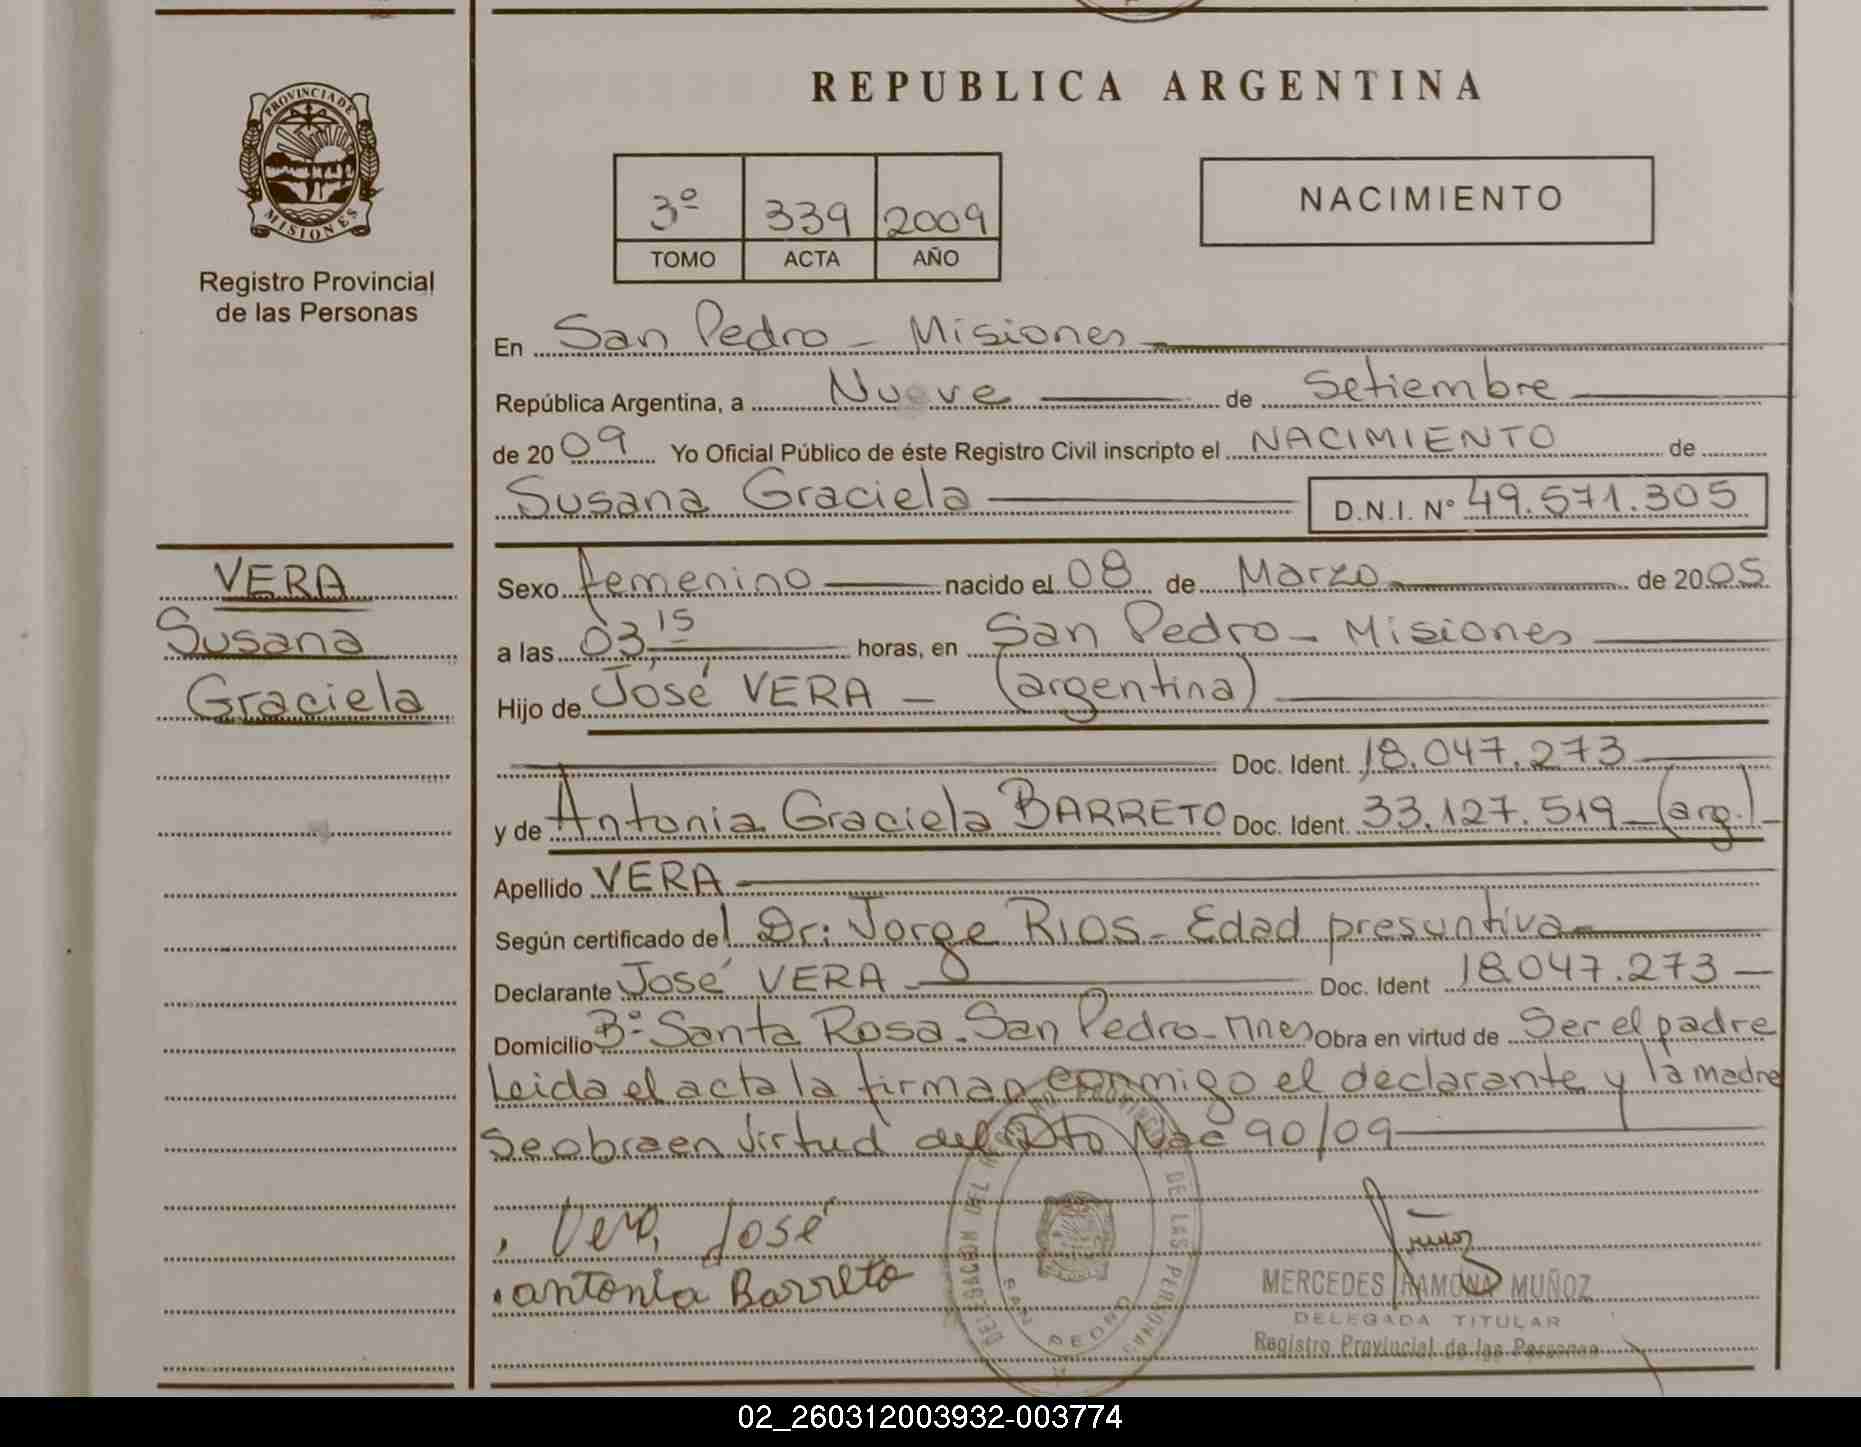 REPUBLICA ARGENTINA
PROVINCIA DE
MISIONES
Registro Provincial
de las Personas
3º 339 2009
TOMO ACTA AÑO
NACIMIENTO
En San Pedro - Misiones
República Argentina, a Nueve de Setiembre
de 2009 Yo Oficial Público de éste Registro Civil inscripto el NACIMIENTO de
Susana Graciela D.N.I. Nº 49.571.305
VERA
Susana
Graciela
Sexo femenino nacido el 08 de Marzo de 2005
a las 03,15 horas, en San Pedro - Misiones
Hijo de José VERA - (argentina)
Doc. Ident. 18.047.273
y de Antonia Graciela BARRETO Doc. Ident. 33.127.519 - (arg.) -
Apellido VERA
Según certificado del Dr: Jorge RIOS - Edad presuntiva
Declarante José VERA Doc. Ident 18.047.273 -
Domicilio Bº Santa Rosa - San Pedro - Mnes Obra en virtud de Ser el padre
Leida el acta la firman conmigo el declarante y la madre
Se obra en virtud del Dto Nac 90/09
Vera, José
antonia Barreto
DELEGACION DEL DE LAS PERSONAS
SAN PEDRO
Muñoz
MERCEDES RAMONA MUÑOZ
DELEGADA TITULAR
Registro Provincial de las Personas
02_260312003932-003774